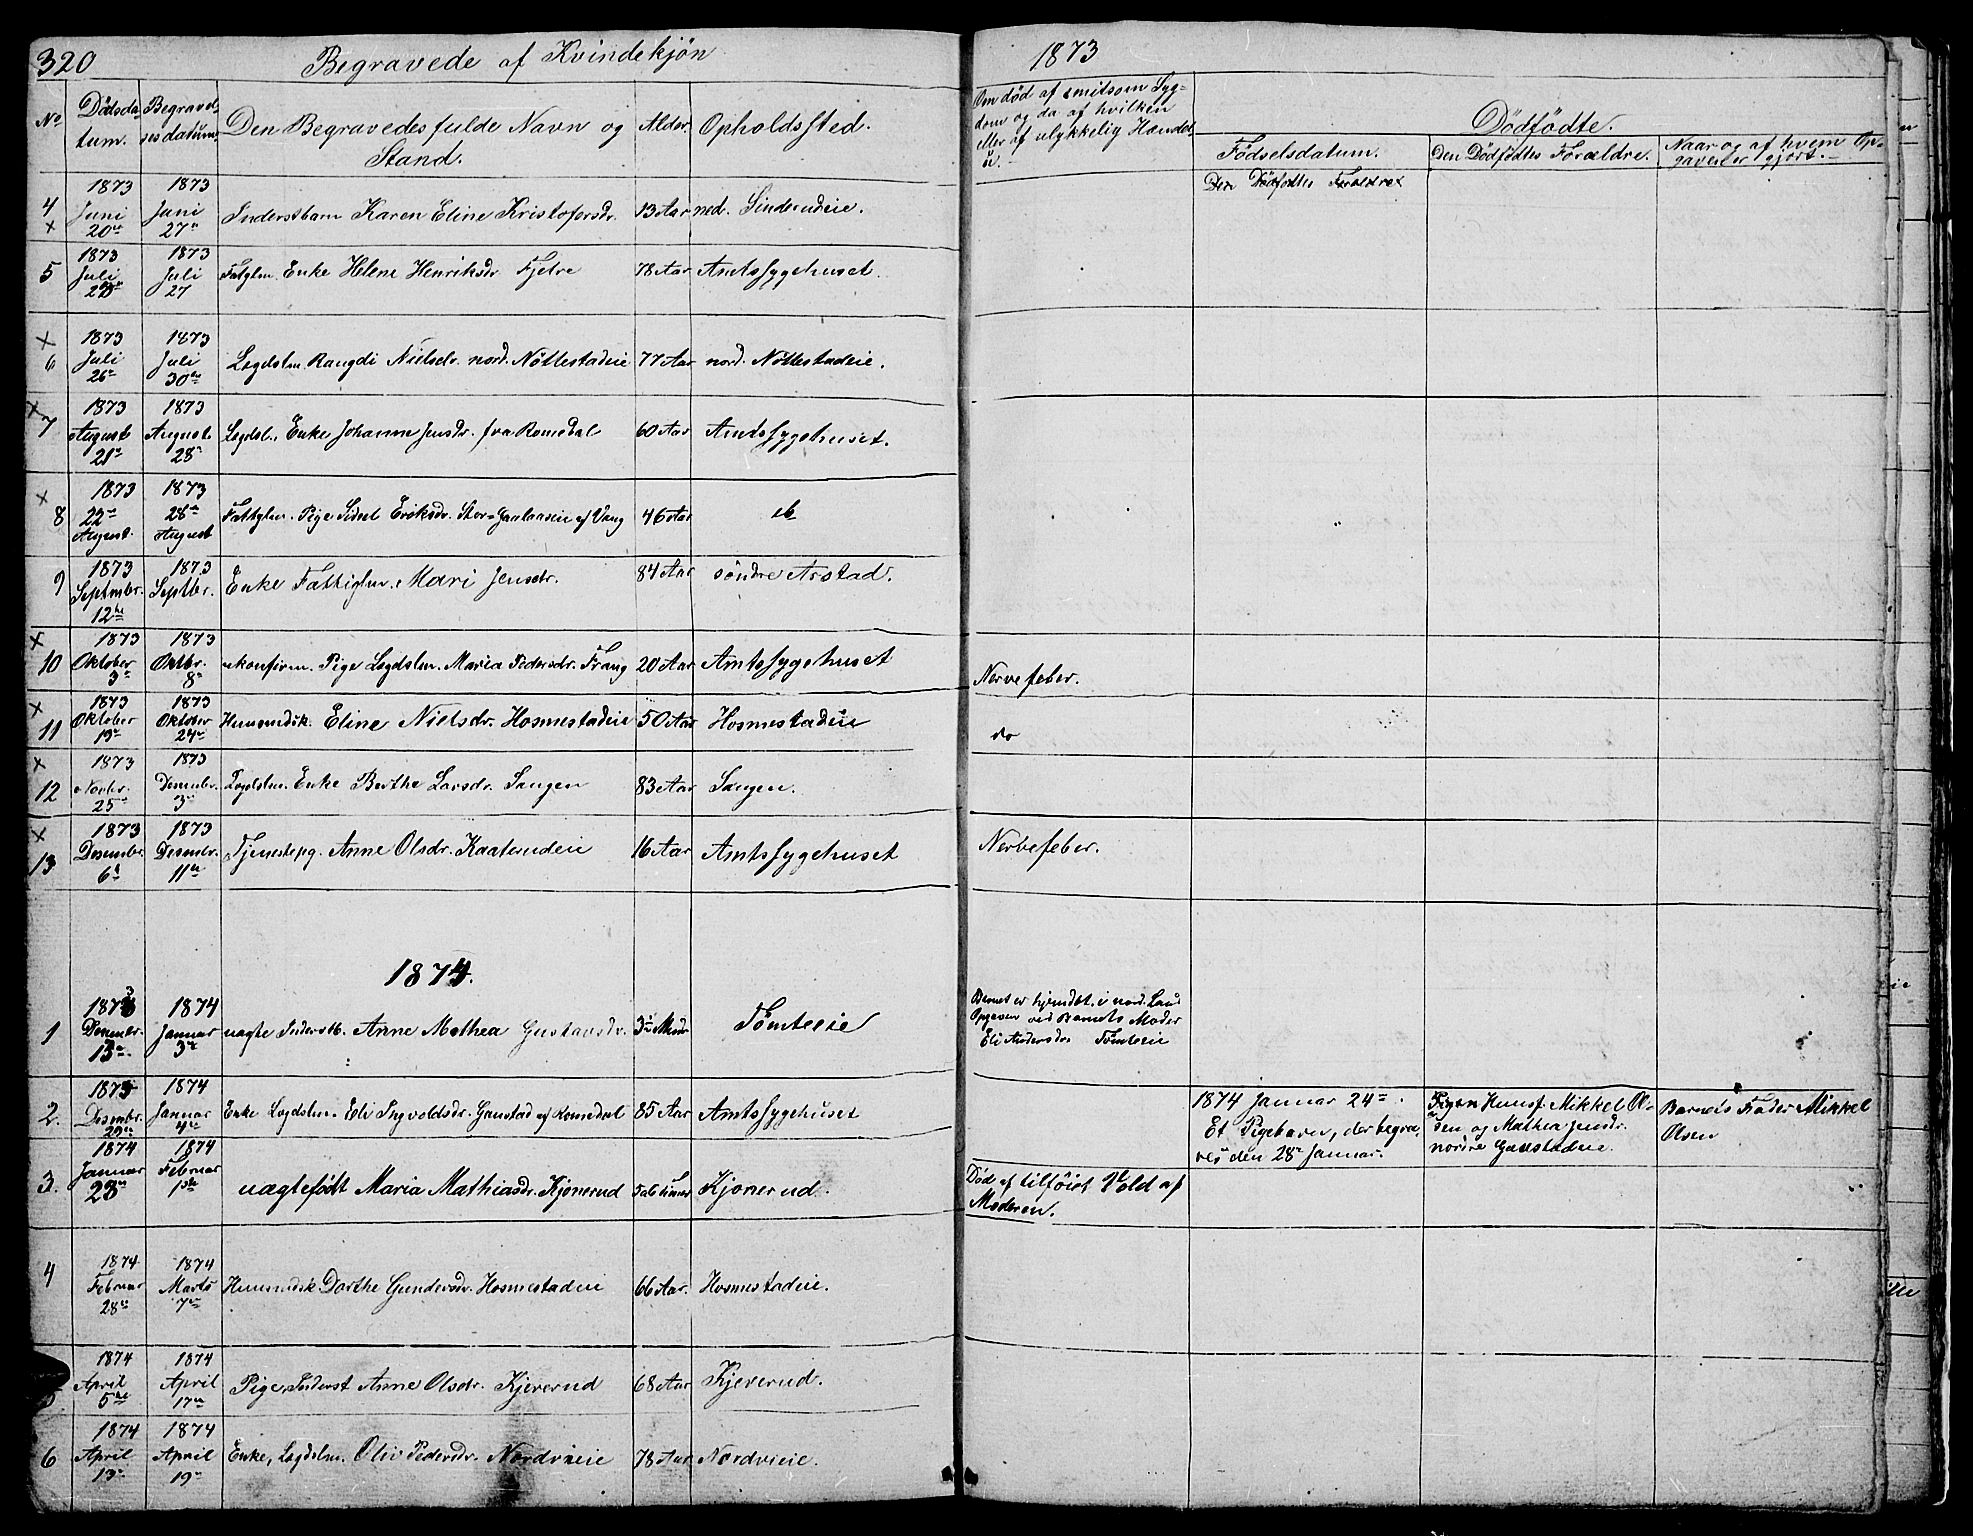 320 Begravede af Kvindekjön 1873
No Dödsdatum. Begravelsesdatum. Den Begravedes fulde Navn og Stand. Alder. Opholdssted. Om död af smitsom Sygdom og da af hvilken eller af ulykkelig Hændelse.
Dödfödte.
Födselsdatum. Den Dödfödtes Forældre. Naar og af hvem Opgaven er gjort.
Den Dödfödtes Forældre
4 x 1873 Juni 20de 1873 Juni 27de Inderstbarn Karen Eline Kristofersdr. 13 Aar ned. Sinderudeie.
5 1873 Juli 1873 Juli 27 Fatglm. Enke Helene Henriksdr Fjetre 78 Aar Amtssygehuset.
x 6 1873 Juli 26de 1873 Juli 30te Lægdslm. Rangdi Nielsdr. nord. Nöttestadeie 77 Aar nord. Nöttestadeie.
x 7 1873 August 21de 1873 August 28de Lægdsl. Enke Johanne Jensdr. fra Romedal 60 Aar Amtssygehuset.
x 8 1873 22de August. 1873 28de August Fattglm. Pige Sidsel Eriksdr. Stor-Gaalaaseie af Vang 46 Aar
9 1873 Septmbr. 12te 1873 Septbr. Enke Fattiglm. Mari Jensdr. 84 Aar söndre Arstad.
x 10 1873 Oktober 3de 1873 Oktbr. 8de ukonfirm. Pige Lægdslm. Maria Pedersdr. Frang 20 Aar Amtssygehuset Nervefeber.
x 11 1873 Oktober 19de 1873 Oktober 24de Huusmdsk. Eline Nielsdr. Hosmestadeie 50 Aar Hosmestadeie do
x 12 1873 Novbr. 25de 1873 Desembr. 3de Lægdslm. Enke Berthe Larsdr. Sangen 83 Aar Sangen.
x 13 1873 Desembr. 6te 1873 Desembr. 11te Tjenestepg. Anne Olsdr. Kaatenudeie 16 Aar Amtssygehuset Nervefeber.
1874.
1 1873 Desembr. 13de 1874 Januar 3de uægte Inderstb. Anne Mathea Gustavsdr. 3 Mndr Tömteeie Barnet er hjemdöbt. i nord. Land
Opgaven ved Barnets Moder
Eli Andersdr. Tömteeie
2. 1873 Desembr. 29de 1874 Januar 4de Enke Lægdslm. Eli Ingvoldsdr. Gaustad af Romedal 85 Aar Amtssygehuset
1874 Januar 24de. Et Pigebarn, der begraves den 28de Januar. Huusf. Mikkel Olsen og Mathea Jensdr. nordre Gaustadeie. Barnets Fader Mikkel Olsen
3. 1874 Januar 23de 1874 Februar 1ste uægtefödt Maria Mathiasdr. Kjonerud 5 a 6 timer Kjonerud. Död af tilföiet Vold af
Moderen.
4 1874 Februar 28de 1874 Marts 7de Huusmdsk. Dorthe Gundersdr. Hosmestadeie 66 Aar. Hosmestadeie.
5 1874 April 5te 1874 April 17de Pige Inderst Anne Olsdr. Kjeverud 68 Aar Kjeverud.
6 1874 April 13de 1874 April 19de Enke, Lægdslm. Oliv Pedersdr. Nordvieie 78 Aar Nordvieie.